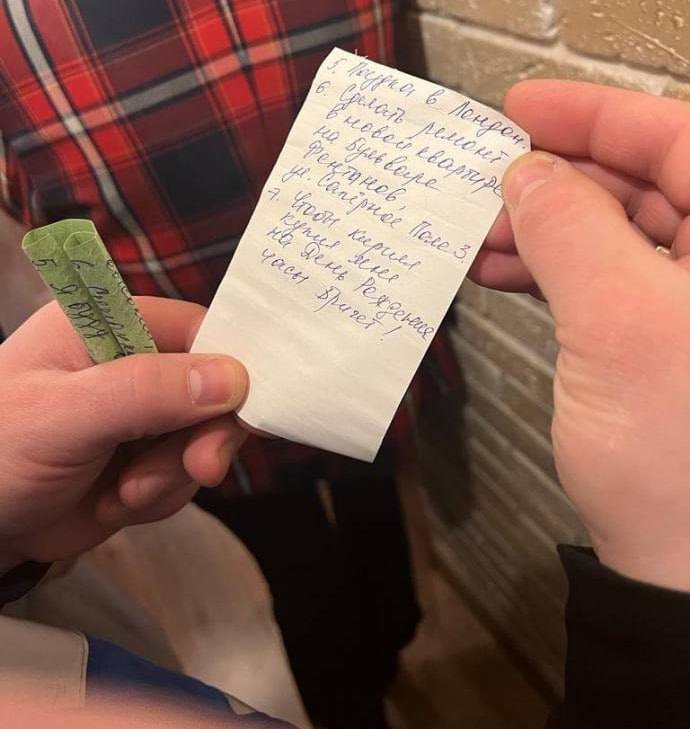 5. Поездка в Лондон.
6. Сделать ремонт
в новой квартире
на Бульваре
Фонтанов,
ул. Сапёрное Поле 3
7. Чтобы Кирилл
купил мне
на День Рождения
часы Бригет!
5. Я
6.